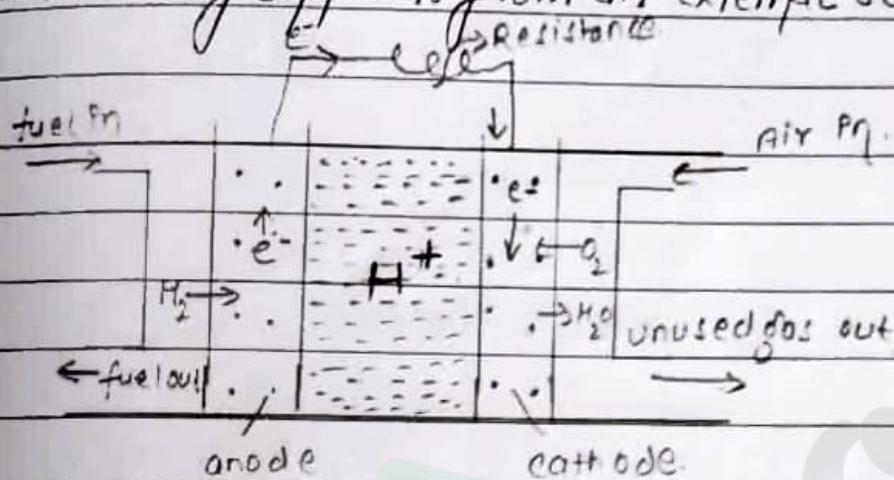 e⁻ Resistance
fuel in
Air in.
e⁻
e⁻
H⁺
O₂
H₂
H₂O
unused gas out
fuel out
anode
cathode.